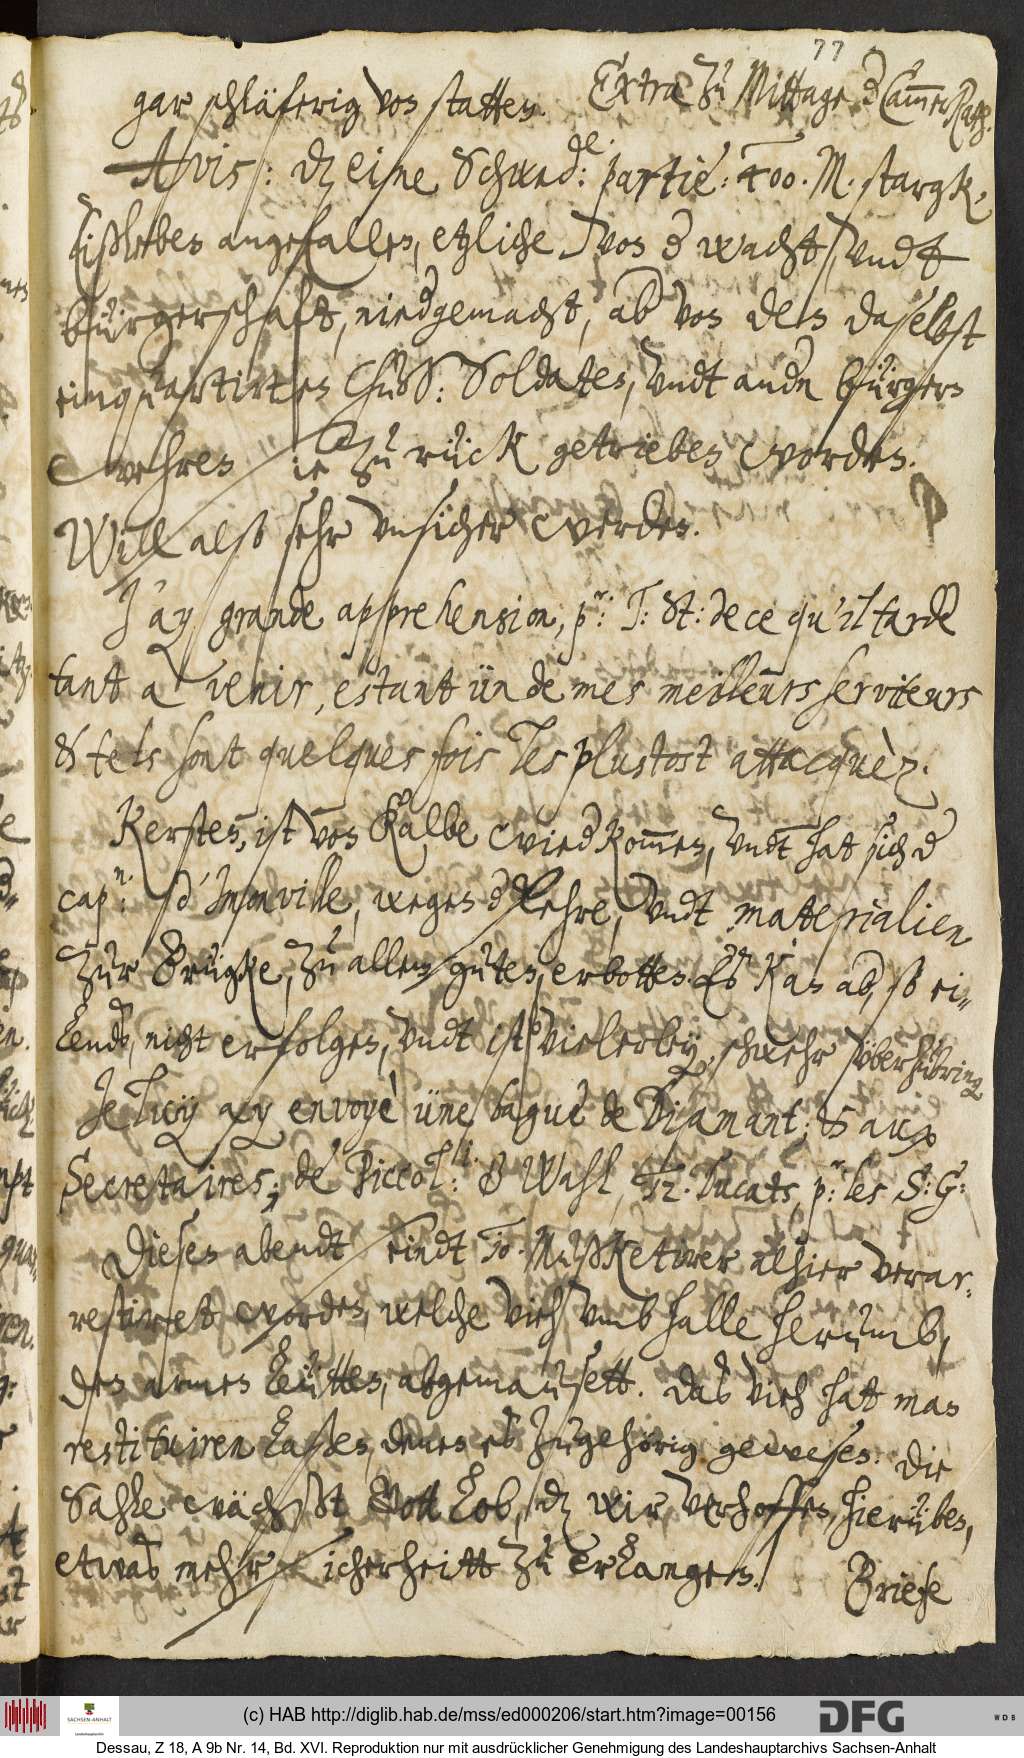 77
gar schläferig von statten. Extra zu Mittage d Cam̄erRath.
Avis: dz eine Schwed: de. partie: 400. M. stargk,
Eißleben angefallen, etzliche von d wacht, vndt
bürgerschaft, niedgemacht, ab von den daselbst
einquartirten ChurS: Soldaten, vndt andn bürgern
wehren sie zu rück getrieben worden.
Will also sehr vnsicher werden.
J'ay grande apprehension, pr: T: St: de ce qu'il tarde
tant a venir, estant ün de mes meilleurs serviteurs
& tels sont quelques fois les plustost attacquèz.
Kersten, ist von Kalbe wiedkom̄en, vndt hat sich d
capn: d' Infonville, wegen d Fehre, vndt materialien
zur Brügke, zu allem guten, erbotten. Es kan ab, so ei-
lends, nicht erfolgen, vndt ist vielerley, schwehr überhübring
Je luy ay envoyè üne bague de Diamant; & aux
Secretaires; de Piccoll: & Wahl, 12. Ducats, pr: les S: G:
Diesen abendt sindt 10. Mußketirer alhier verar-
restiret worden, welche vieh vmb Halle herumb,
den armen Leütten, abgemauset. das vieh hat man
restituiren laßen, denen es zugehörig gewesen. die
Sahle wächßt Gott lob, dz wir verhoffen, hierüben,
etwas mehr sicherheitt zu erlangen.
Briefe
(c) HAB http://diglib.hab.de/mss/ed000206/start.htm?image=00156
SACHSEN-ANHALT
Landeshauptarchiv
DFG
W D B
Dessau, Z 18, A 9b Nr. 14, Bd. XVI. Reproduktion nur mit ausdrücklicher Genehmigung des Landeshauptarchivs Sachsen-Anhalt